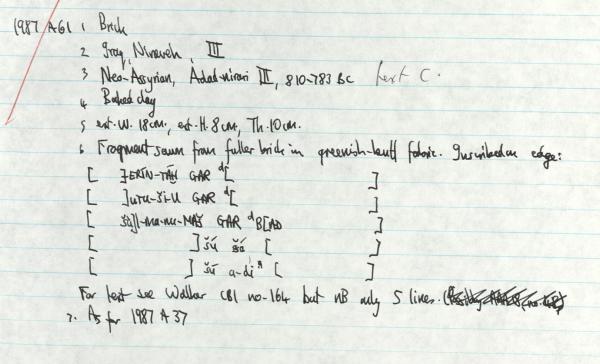 1987 A61 1 Brick
2 Iraq, Nineveh, III
3 Neo-Assyrian, Adad-nirari III, 810-783 BC text C.
4 Baked clay
5 ext. W. 18cm, ext. H. 8cm, Th. 10cm.
6 Fragment sawn from fuller brick in greenish-buff fabric. Inscribed on edge:
[ ]ERIN-TÁḪ GAR d[ ]
[ ]UTU-ši-U GAR d[ ]
šùl-ma-nu-MAŠ GAR dB[AD ]
[ ] šú šá [ ]
[ ] šú a-di [ ]
For text see Walker CBI no. 164 but NB only 5 lines.
7. As for 1987 A37